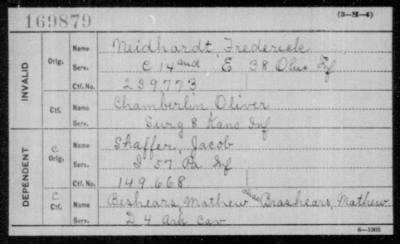 169879
(3-H-4)
INVALID
Orig.
Name Neidhardt, Frederick
Serv. C 14 and E 38 Ohio Inf
Ctf. No. 239,773
Ctf.
Name Chamberlin, Oliver
Serv. Surg 8 Kans Inf
DEPENDENT
C. Orig.
Name Shaffer, Jacob
Serv. I 57 Pa Inf
Ctf. No. 149668
C. Ctf.
Name Beshears, Mathew Brashears, Mathew
Serv. D 4 Ark Cav